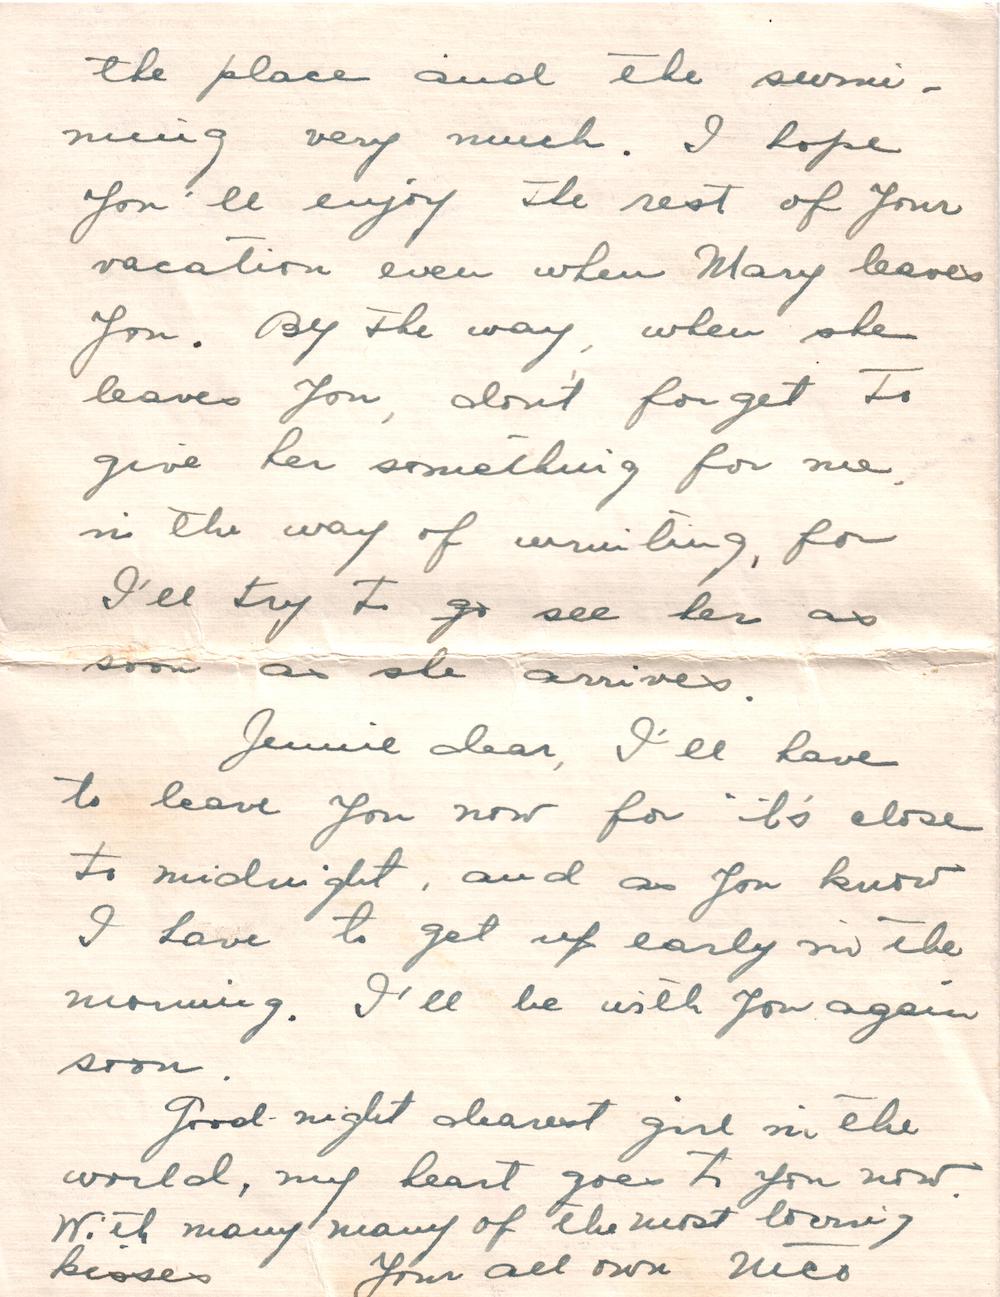 the place and the swimi-
ming very much. I hope
You'll enjoy the rest of Your
vacation even when Mary leaves
You. By the way, when she
leaves You, dont forget to
give her something for me,
in the way of writing, for
I'll try to go see her as
soon as she arrives.
Jennie dear, I'll have
to leave You now for it's close
to midnight, and as You know
I have to get up early in the
morning. I'll be with You again
soon.
Good-night dearest girl in the
world, my heart goes to You now.
With many many of the most loving
kisses Your all own Nico